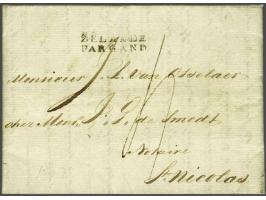 ZELZATE
PAR GAND
Monsieur J. L. Van Esselaer
chez Mons. J. G. de Smedt
Notaire
St. Nicolas